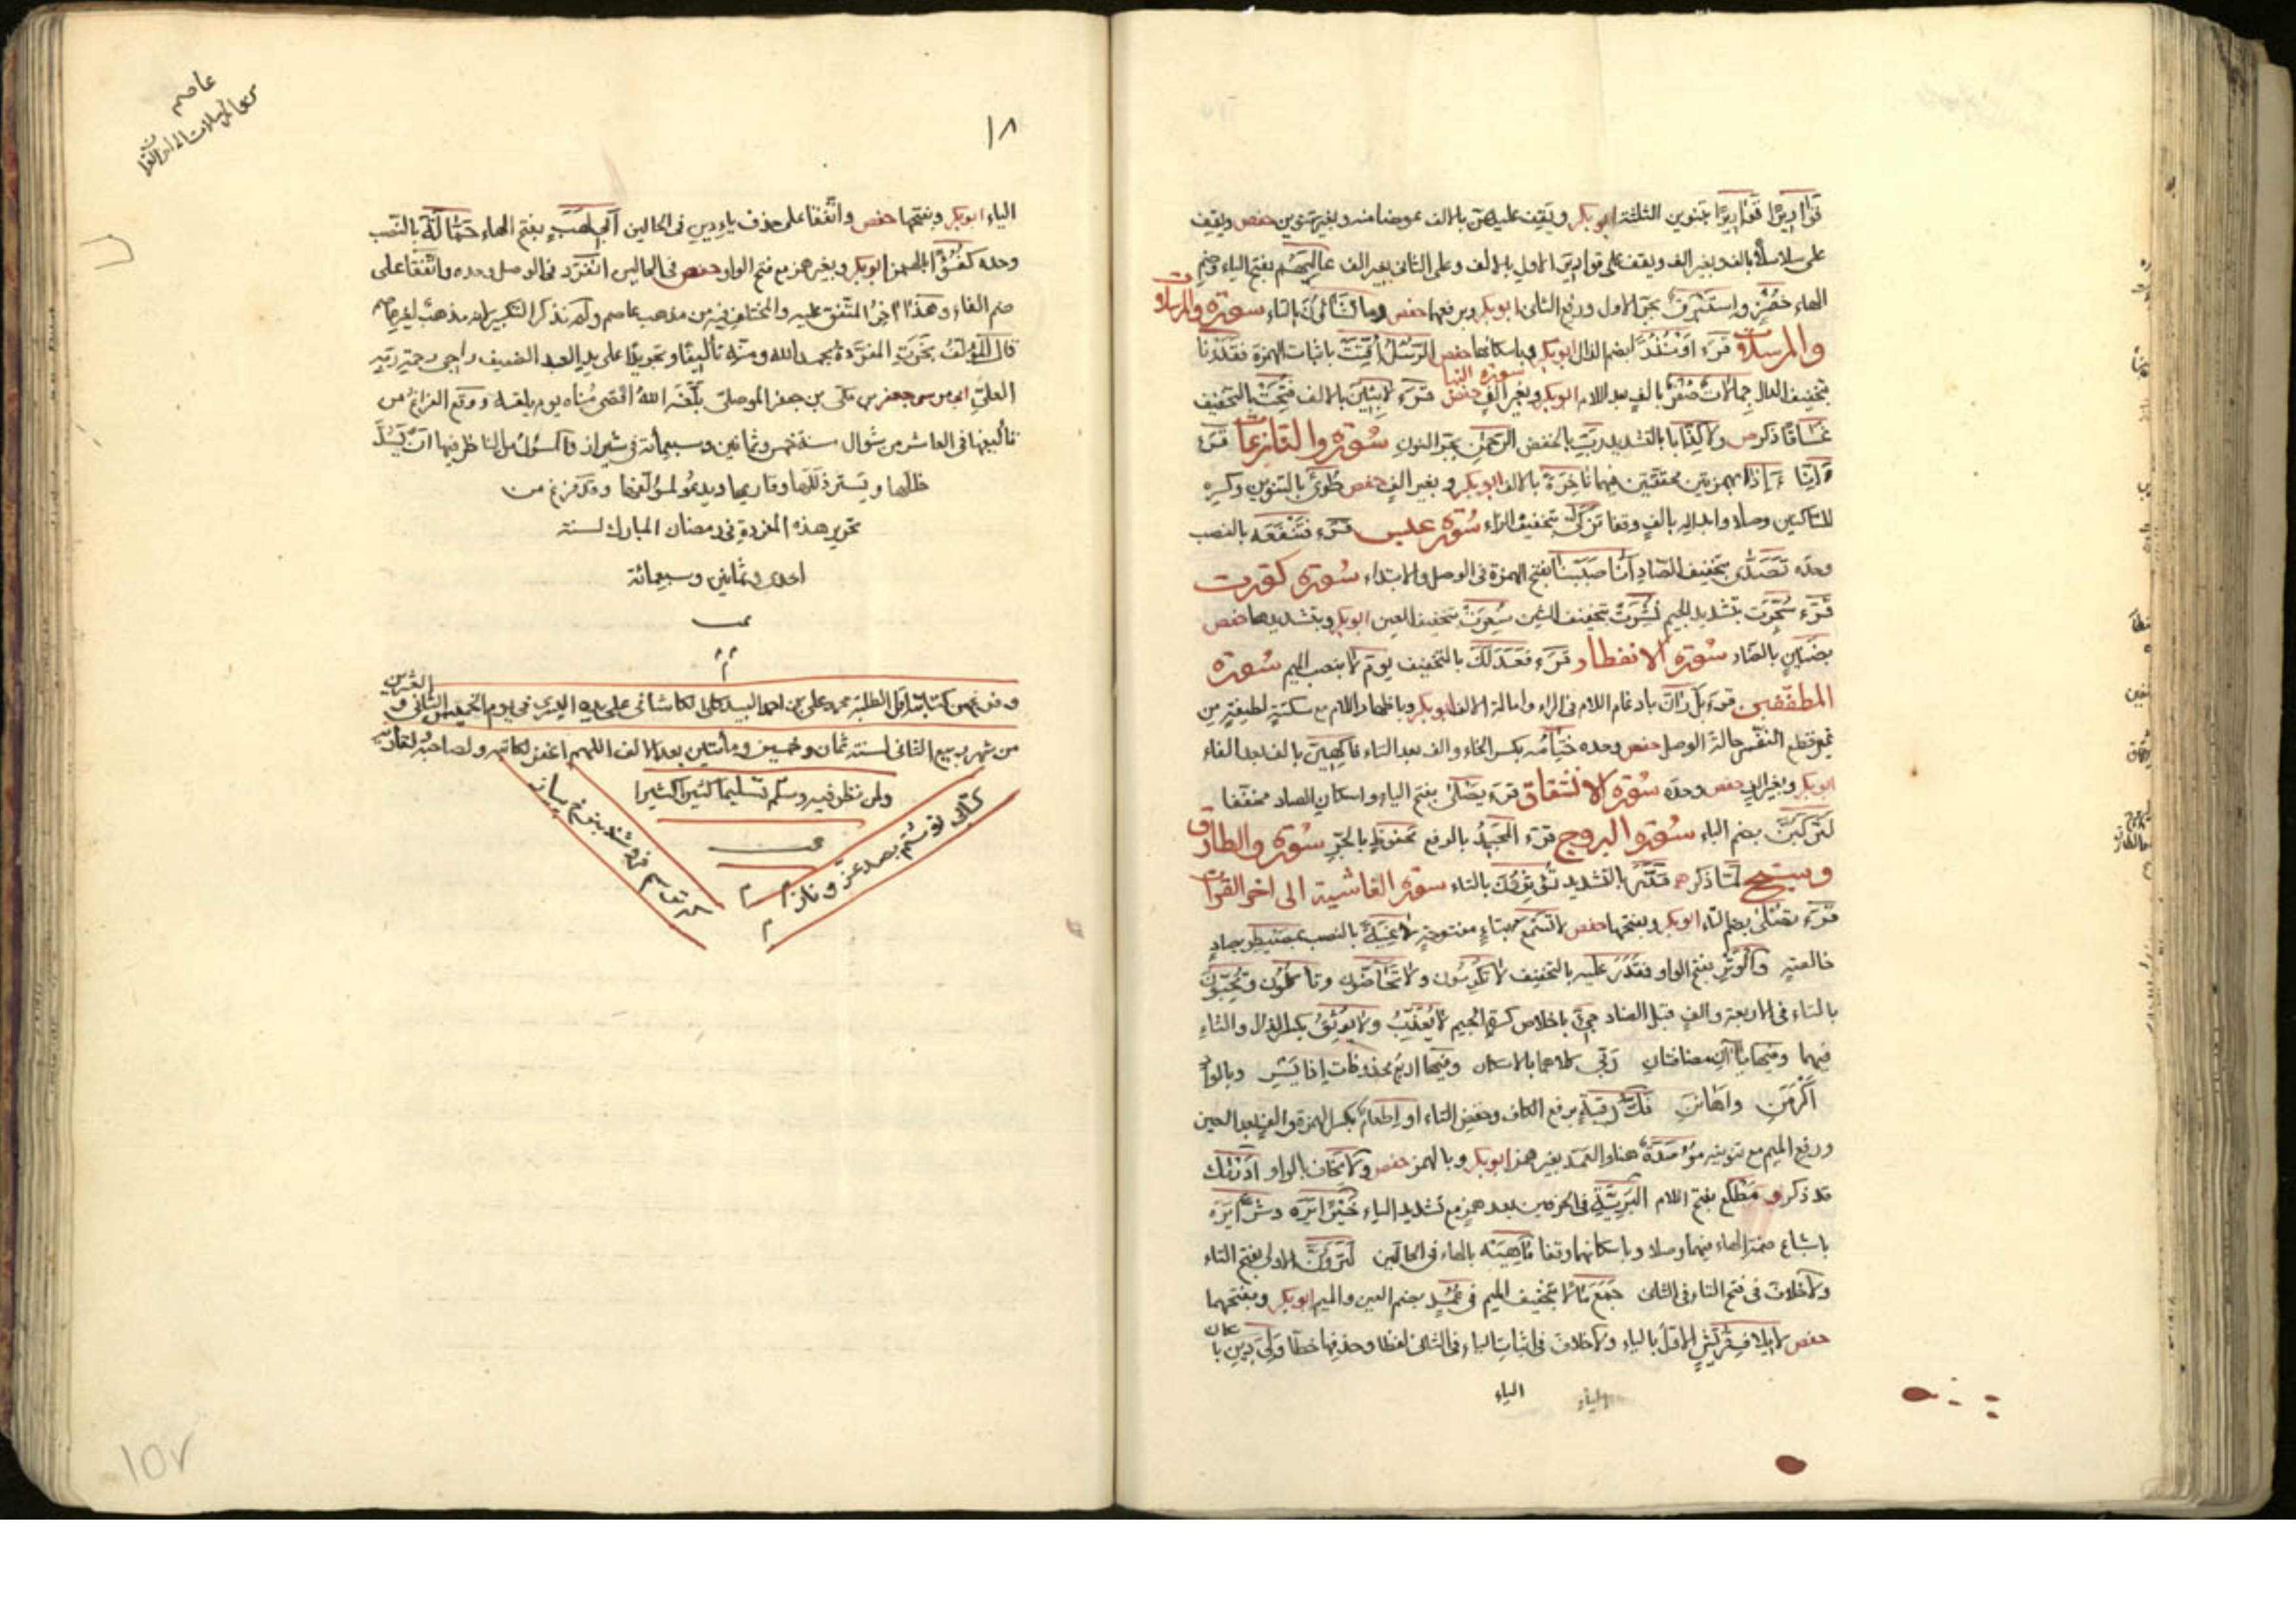 قَوَارِيرًا قَوَارِيرًا بتنوين الثلثة ابوبكر ويقف عليهن بالالف عوضا منه وبغير تنوين حفص ويقف
على سلاسلًا بالف وبغير الف ويقف على قواريرا الاول بالالف وعلى الثانى بغير الف عاليَهُم بفتح الياء وضم
الهاء خُضْرٍ واستَبْرَقٌ بجر الاول ورفع الثانى ابوبكر وبرفعهما حفص وما تَشَاؤُنَ بالتاء سورة والمرسلات
والمرسلات قرء اَوْنُذُرًا بضم الذال ابوبكر وباسكانها حفص الرسل اُقِّتَتْ باثبات الهمزة فقَدَرْنا
بتخفيف الدال جِمَالاتٌ صُفْرٌ بالف بعد اللام ابوبكر وبغير الف حفص سورة النبا قرء لابِثِينَ بالالف فُتِحَتْ بالتخفيف
غَسَّاقًا ذكر ولا كِذَّابا بالتشديد ربِّ بالخفض الرحمنِ بجر النون سورة والنازعات قرء
ءَاِنَّا ءَاِذَا بهمزتين محققتين فيهما نَاخِرَةً بالالف ابوبكر وبغير الف حفص طُوًى بالتنوين وكسره
للساكنين وصلا وابداله بالف وقفا تَزَكّى بتخفيف الزاء سورة عبس قرء فَتَنْفَعَهُ بالنصب
وحده تَصَدّى بتخفيف الصاد اَنَّا صَبَبْنَا بفتح الهمزة فى الوصل والابتداء سورة كورت
قرء سُجِّرَت بتشديد الجيم نُشِرَتْ بتخفيف الشين سُعِرَتْ بتخفيف العين ابوبكر وبتشديدها حفص
بضَنِينٍ بالضاد سورة الانفطار قرء فعَدَلَكَ بالتخفيف يومَ لا بنصب الميم سورة
المطففين قرء بَل رَّانَ بادغام اللام فى الراء وامالة الالف ابوبكر وباظهار اللام مع سكتة لطيفة من
غير قطع النفس حالة الوصل حفص وحده خِتَامُه بكسر الخاء والف بعد التاء فاكِهِينَ بالف بعد الفاء
ابوبكر وبغير الف حفص وحده سورة الانشقاق قرء يَصْلَى بفتح الياء واسكان الصاد مخففا
لَتَرْكَبُنَّ بضم الباء سورة البروج قرء المجيدُ بالرفع محفوظٍ بالجر سورة والطارق
وسبح لَمَّا ذكر قَدَّرَ بالتشديد تُؤْثِرُونَ بالتاء سورة الغاشية الى اخر القرآن
قرء تُصْلَى بضم التاء ابوبكر وبفتحها حفص لا تَسْمَعُ بتاء مفتوحة لاغِيَةً بالنصب بمصيطر بصاد
خالصة والوَتْرِ بفتح الواو فقَدَرَ عليه بالتخفيف لا تُكْرِمُون ولا تَحَاضُّونَ وتأكلون وتحبون
بالتاء فى الاربعة والف قبل الضاد جِىءَ باخلاص كسرة الجيم لا يُعَذِّبُ ولا يُوثِقُ بكسر الذال والثاء
فيهما وفيها ياآن مضافتان ربّى كلاهما بالاسكان وفيها اربع محذوفات اذا يَسْرِ وبالوادِ
اَكْرَمَنِ واَهَانَنِ فَكُّ رَقَبَةٍ برفع الكاف وخفض التاء او اِطْعَامٌ بكسر الهمزة والف بعد العين
ورفع الميم مع تنوينه مُوصَدَةٌ هنا والهمزة بغير همز ابوبكر وبالهمز حفص ولا يَخَافُ بالواو اَدْرَيْكَ
قد ذكر ومَطْلَعِ بفتح اللام البَرِيَّةِ فى الحرفين بعد همز مع تشديد الياء خَيْرًا يَرَهُ وشَرًّا يَرَهُ
باشباع ضمة الهاء فيهما وصلا وباسكانهما وقفا مَاهِيَهْ بالهاء فى الحالين لَتَرَوُنَّ الاولى بفتح التاء
ولا خلاف فى فتح التاء فى الثانى جَمَعَ مَالًا بتخفيف الميم فى عُمُدٍ بضم العين والميم ابوبكر وبفتحهما
حفص لايلاف قريش الاول بالياء ولا خلاف فى اثبات الياء فى الثانى لفظا وحذفها خطا ولِىَ دِينِ باسكان
الياء
الياء
عاصم
من المرسلات الى اخر القرآن
١٨
الياء ابوبكر وبفتحها حفص واتفقا على حذف ياء دين فى الحالين اَبِى لَهَبٍ بفتح الهاء حَمَّالَةَ بالنصب
وحده كُفُؤًا بالهمز ابوبكر وبغير همز مع فتح الواو حفص فى الحالين انفرد فى الوصل وحده واتفقا على
ضم الفاء وهذا اخر المتفق عليه والمختلف فيه من مذهب عاصم ولم نذكر التكبير لانه مذهب لغير عاصم
قال المؤلف نَجَزَتِ المفردة بحمد الله ومنه تأليفا وتحريرا على يد العبد الضعيف راجى رحمة ربه
العلى ابى موسى جعفر بن مكى بن جعفر الموصلى بلّغه الله اقصى مُناه يوم يلقاه ووقع الفراغ من
تأليفها فى العاشر من شوال سنة خمس وثمانين وسبعمائة فى شيراز والمسئول من الناظر فيها ان يسد
خللها ويستر زللها وقاريها ويدعو لمؤلفها وقد فرغ من
تحرير هذه المفردة فى رمضان المبارك لسنة
احدى وثمانين وسبعمائة
تمت
م م م
وقد فرغ من كتابته اقل الطلبة محمد على بن احمد الكاشانى على يده اليسرى فى يوم الخميس الثانى و العشرين
من شهر ربيع الثانى لسنة ثمان وخمسين ومأتين بعد الالف اللهم اغفر لكاتبه ولصاحبه لقاريه
ولمن نظر فيه وسلم تسليما كثيرا كثيرا
تمت
كتابى نوشتم بصد عز وناز
م م م
١٥٧